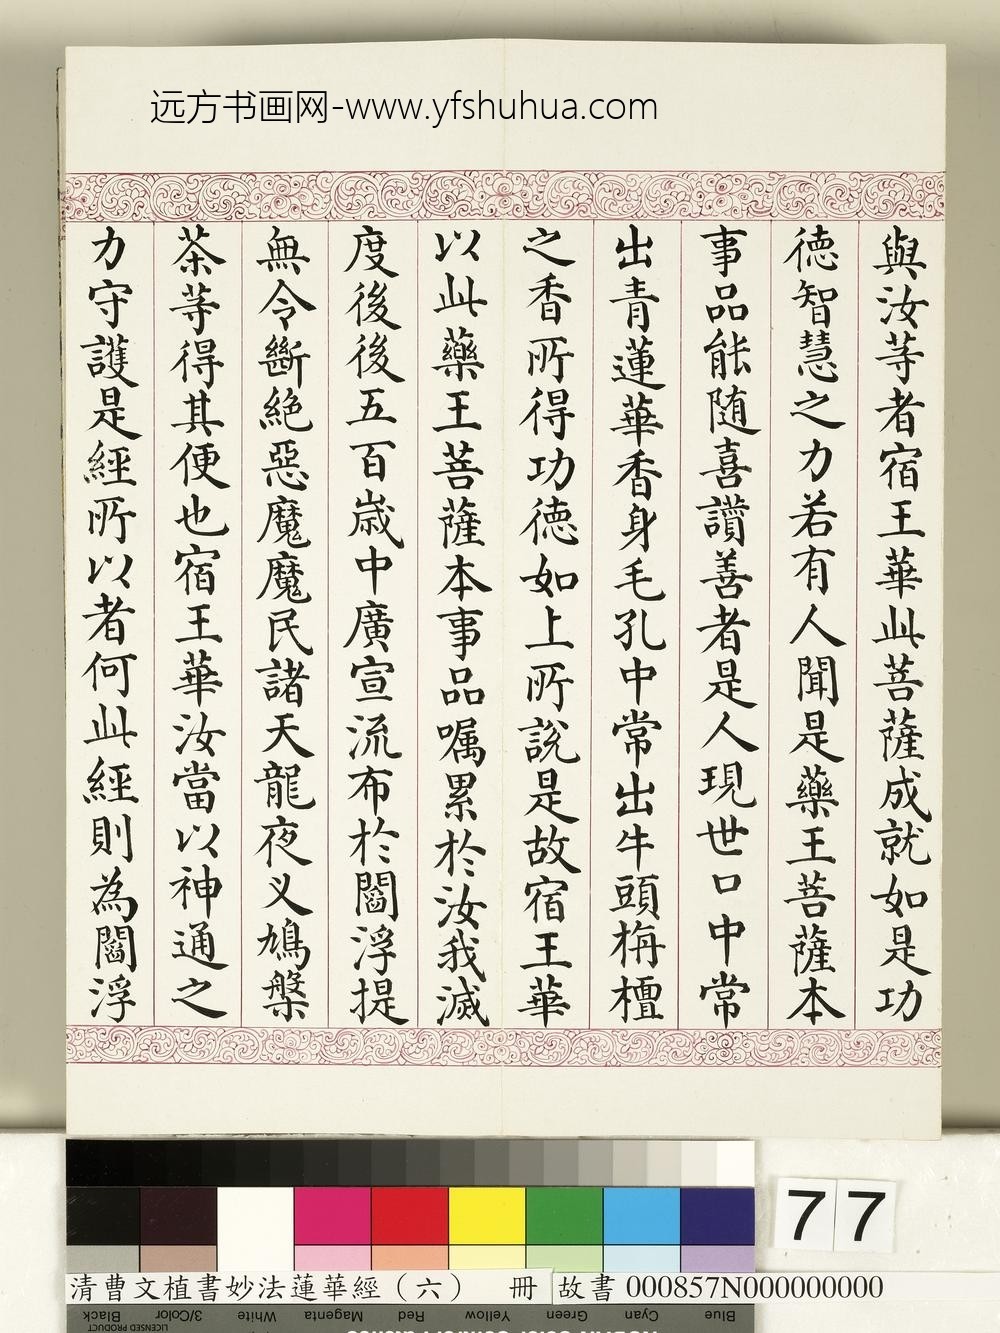 远方书画网-www.yfshuhua.com
與汝等者宿王華此菩薩成就如是功
德智慧之力若有人聞是藥王菩薩本
事品能随喜讃善者是人現世口中常
出青蓮華香身毛孔中常出牛頭栴檀
之香所得功德如上所說是故宿王華
以此藥王菩薩本事品嘱累於汝我滅
度後後五百歳中廣宣流布於閻浮提
無令斷絶惡魔魔民諸天龍夜叉鳩槃
茶等得其便也宿王華汝當以神通之
力守護是經所以者何此經則為閻浮
77
清曹文植書妙法蓮華經（六） 冊 故書 000857N000000000
Black 3/Color White Magenta Red Yellow Green Cyan Blue
LICENSED PRODUCT